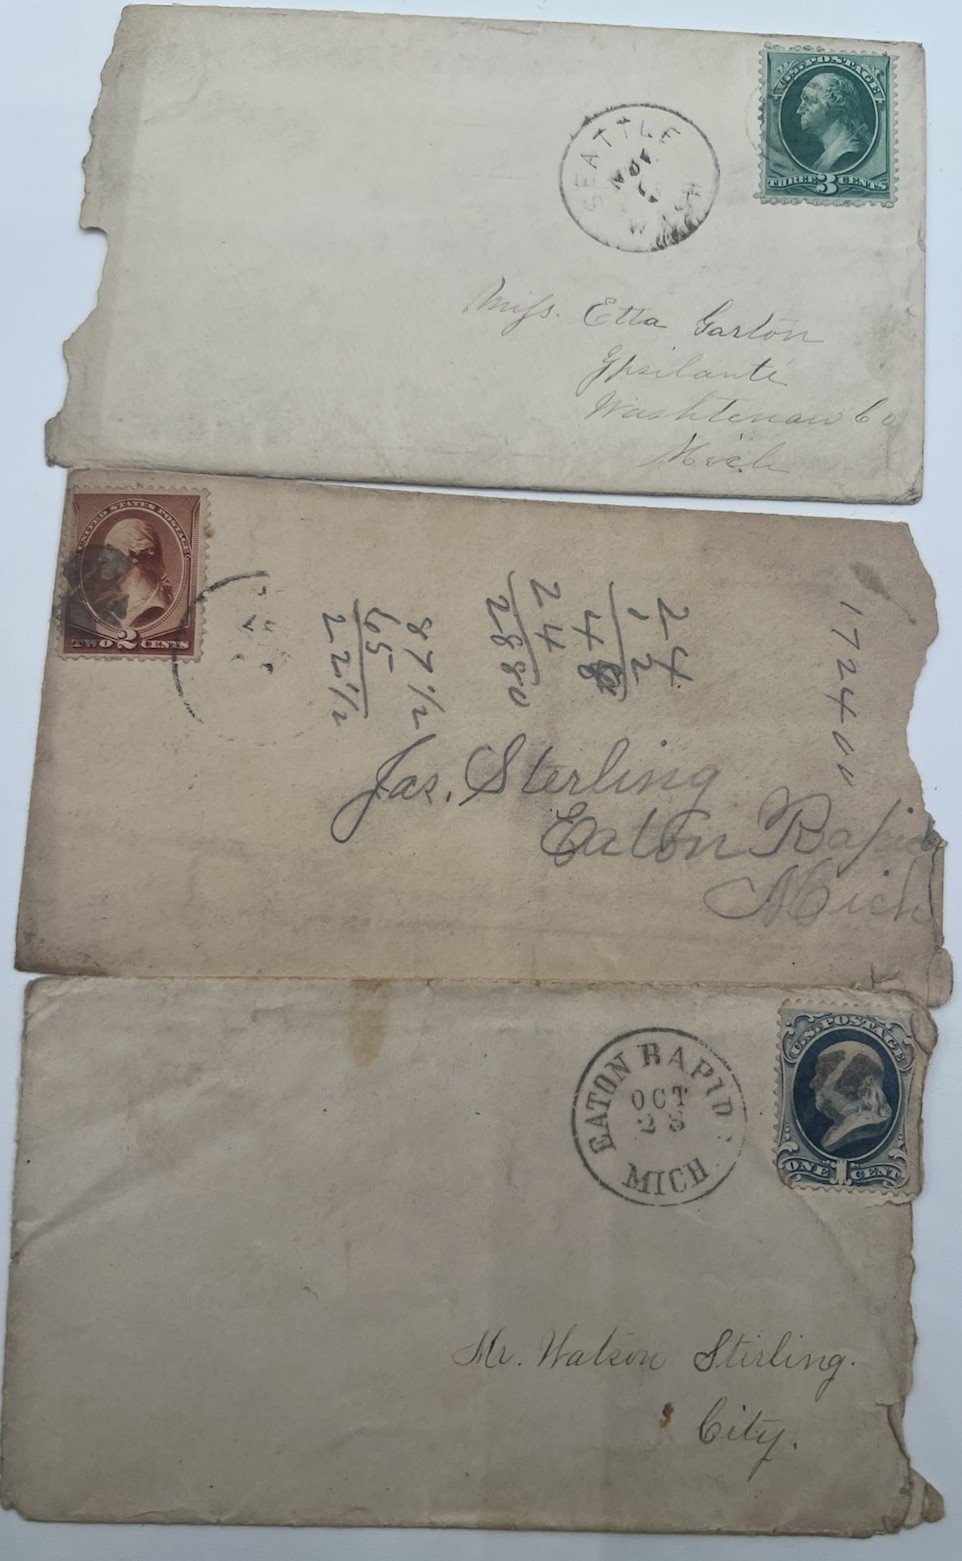 U.S. POSTAGE
THREE 3 CENTS
SEATTLE
NOV
Miss. Etta Garton
Ypsilanti
Washtenaw Co
Mich
UNITED STATES POSTAGE
TWO 2 CENTS
24
12
48
24
2880
87 1/2
65
22 1/2
172400
Jas. Sterling
Eaton Rapids
Mich
U.S. POSTAGE
ONE 1 CENT
EATON RAPIDS
OCT
23
MICH
Mr. Watson Stirling.
City.